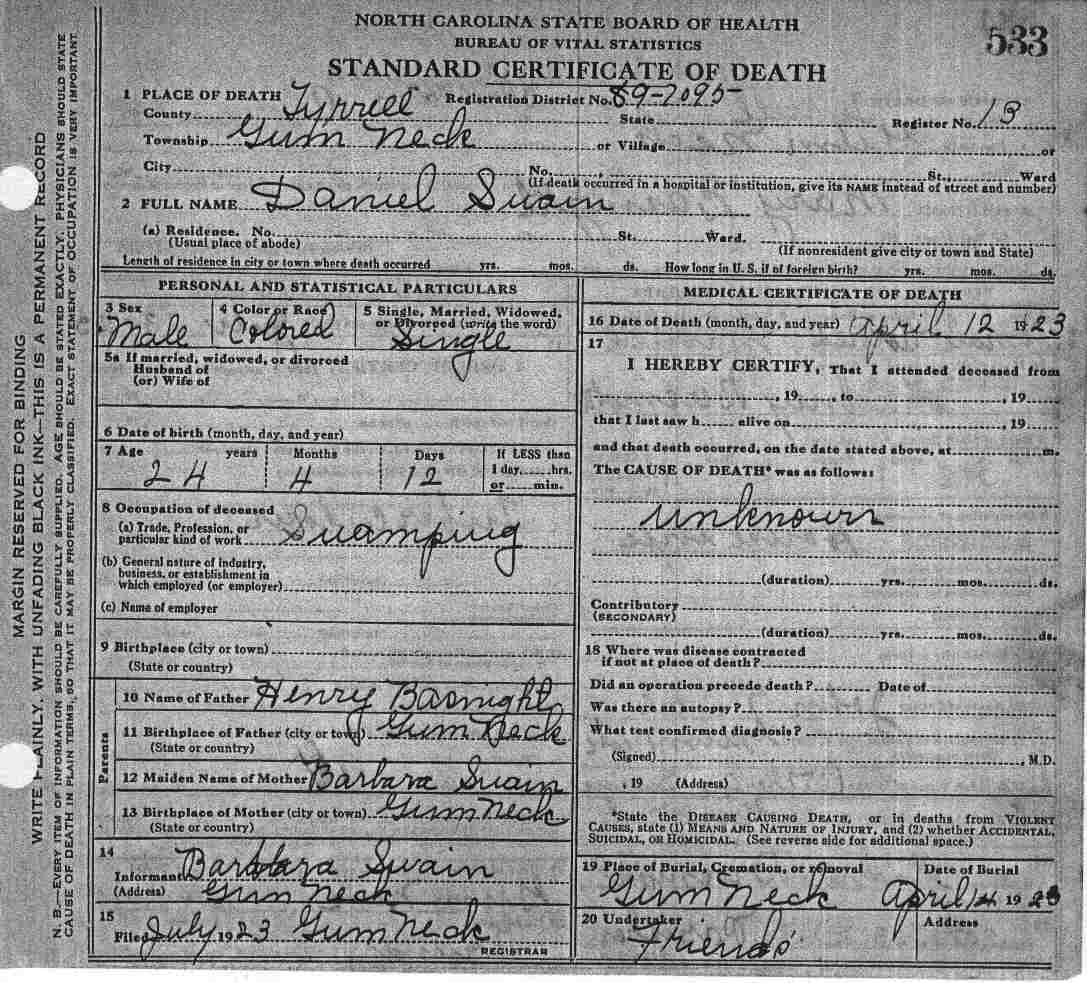 NORTH CAROLINA STATE BOARD OF HEALTH
BUREAU OF VITAL STATISTICS
STANDARD CERTIFICATE OF DEATH
533
1 PLACE OF DEATH
County Tyrrell Registration District No. 89-7095 State Register No. 13
Township Gum Neck or Village or
City No. St., Ward
(If death occurred in a hospital or institution, give its NAME instead of street and number)
2 FULL NAME Daniel Swain
(a) Residence. No. St. Ward.
(Usual place of abode) (If nonresident give city or town and State)
Length of residence in city or town where death occurred yrs. mos. ds. How long in U. S. if of foreign birth? yrs. mos. ds.
PERSONAL AND STATISTICAL PARTICULARS
3 Sex
Male
4 Color or Race
Colored
5 Single, Married, Widowed,
or Divorced (write the word)
Single
5a If married, widowed, or divorced
Husband of
(or) Wife of
6 Date of birth (month, day, and year)
7 Age years Months Days
24 4 12
If LESS than
1 day, hrs.
or min.
8 Occupation of deceased
(a) Trade, Profession, or
particular kind of work Swamping
(b) General nature of industry,
business, or establishment in
which employed (or employer)
(c) Name of employer
9 Birthplace (city or town)
(State or country)
Parents
10 Name of Father Henry Basnight
11 Birthplace of Father (city or town) Gum Neck
(State or country)
12 Maiden Name of Mother Barbara Swain
13 Birthplace of Mother (city or town) Gum Neck
(State or country)
14
Informant Barbara Swain
(Address) Gum Neck
15
Filed July 1923 Gum Neck
REGISTRAR
MEDICAL CERTIFICATE OF DEATH
16 Date of Death (month, day, and year) April 12 1923
17
I HEREBY CERTIFY, That I attended deceased from
, 19 , to , 19
that I last saw h alive on , 19
and that death occurred, on the date stated above, at m.
The CAUSE OF DEATH* was as follows:
unknown
(duration) yrs. mos. ds.
Contributory
(SECONDARY)
(duration) yrs. mos. ds.
18 Where was disease contracted
if not at place of death?
Did an operation precede death? Date of
Was there an autopsy?
What test confirmed diagnosis?
(Signed) , M.D.
, 19 (Address)
*State the DISEASE CAUSING DEATH, or in deaths from VIOLENT
CAUSES, state (1) MEANS AND NATURE OF INJURY, and (2) whether ACCIDENTAL,
SUICIDAL, OR HOMICIDAL. (See reverse side for additional space.)
19 Place of Burial, Cremation, or removal Date of Burial
Gum Neck April 14 1923
20 Undertaker Address
Friends
MARGIN RESERVED FOR BINDING
WRITE PLAINLY, WITH UNFADING BLACK INK—THIS IS A PERMANENT RECORD
N. B.—EVERY ITEM OF INFORMATION SHOULD BE CAREFULLY SUPPLIED. AGE SHOULD BE STATED EXACTLY. PHYSICIANS SHOULD STATE
CAUSE OF DEATH IN PLAIN TERMS, SO THAT IT MAY BE PROPERLY CLASSIFIED. EXACT STATEMENT OF OCCUPATION IS VERY IMPORTANT.